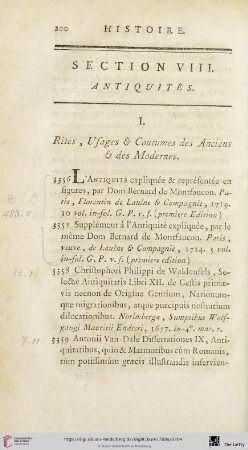 200 HISTOIRE.
SECTION VIII.
ANTIQUITÉS.
I.
Rites, Usages & Coutumes des Anciens
& des Modernes.
3356 L'ANTIQUITÉ expliquée & représentée en
figures, par Dom Bernard de Montfaucon. Pa-
ris, Florentin de Laulne & Compagnie, 1719.
10 vol. in-fol. G. P. v. f. (premiere Edition)
3357 Supplément à l'Antiquité expliquée, par le
même Dom Bernard de Montfaucon. Paris,
veuve, de Laulne & Compagnie, 1724. 5 vol.
in-fol. G. P. v. f. (premiere edition)
3358 Christophori Philippi de Waldenfels, Se-
lectæ Antiquitatis Libri XII. de Gestis primæ-
vis necnon de Origine Gentium, Nationum-
que migrationibus, atque præcipuis nostratum
dilocationibus. Norimbergæ, Sumptibus Wolf-
gangi Mauritii Endteri, 1677. in-4°. mar. r.
3359 Antonii Van-Dale Dissertationes IX, Anti-
quitatibus, quin & Marmoribus cùm Romanis,
tum potissimùm græcis illustrandis inservien-